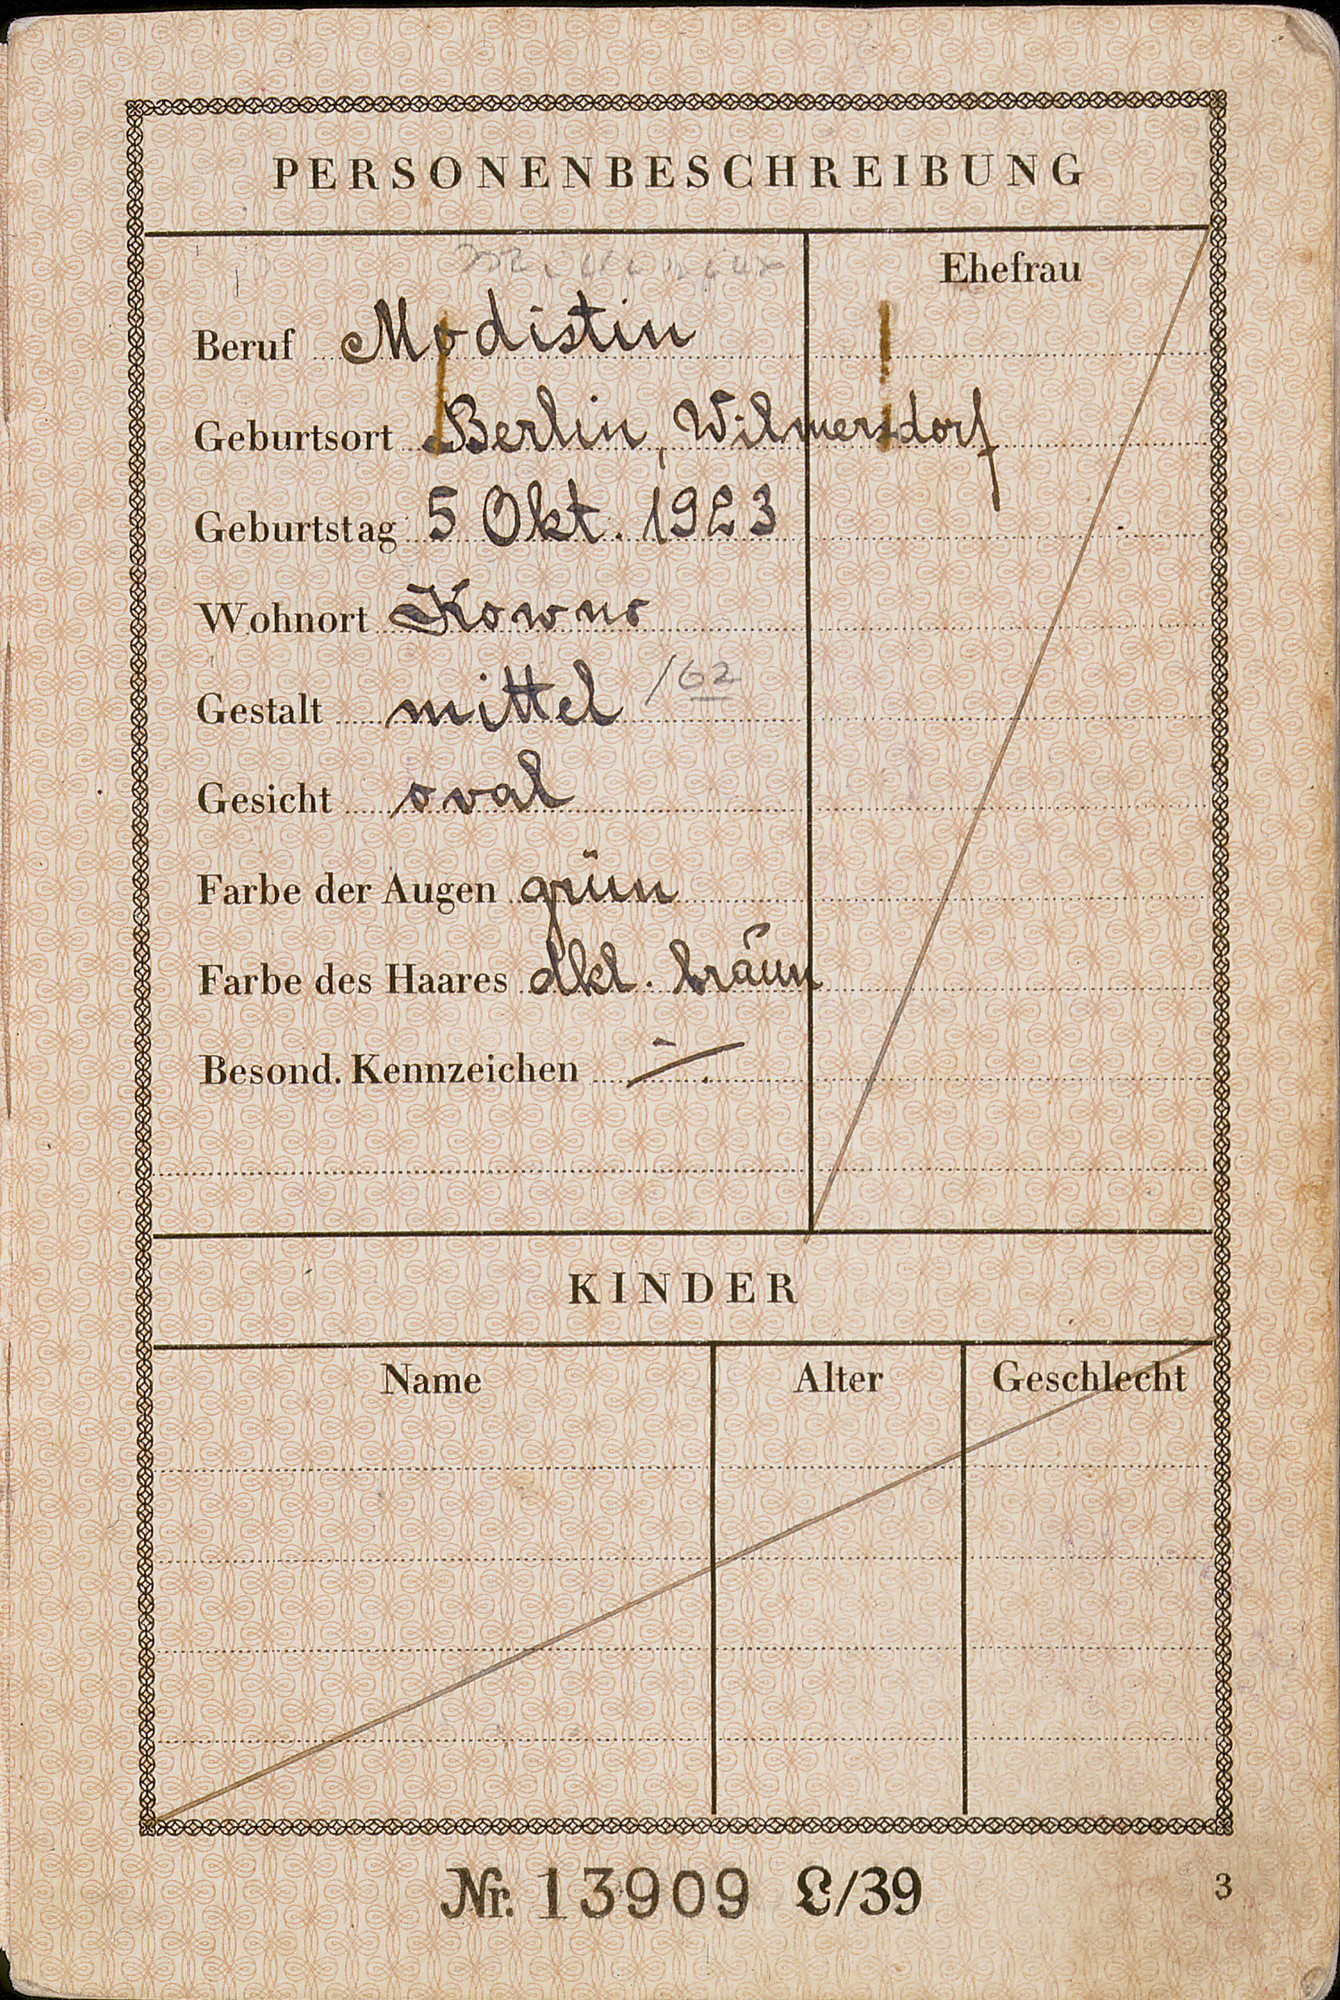 PERSONENBESCHREIBUNG
Ehefrau
Beruf Modistin
Geburtsort Berlin, Wilmersdorf
Geburtstag 5 Okt. 1923
Wohnort Kowno
Gestalt mittel /62
Gesicht oval
Farbe der Augen grün
Farbe des Haares dkl. braun
Besond. Kennzeichen —
KINDER
Name Alter Geschlecht
Nr. 13909 L/39
3